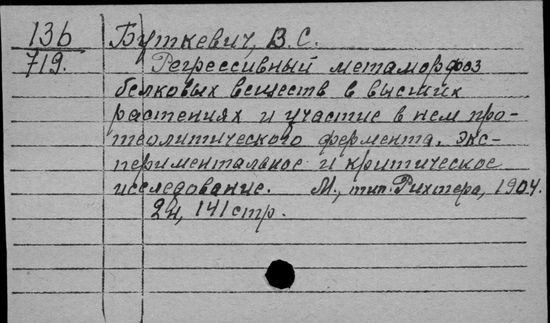 13б Буткевич, В. С.
719. Регрессивный метаморфоз
белковых веществ в высших
растениях и участие в нем про-
теолитического фермента. Экс-
периментальное и критическое
исследование. М., тип. Рихтера, 1904.
2н, 141 стр.